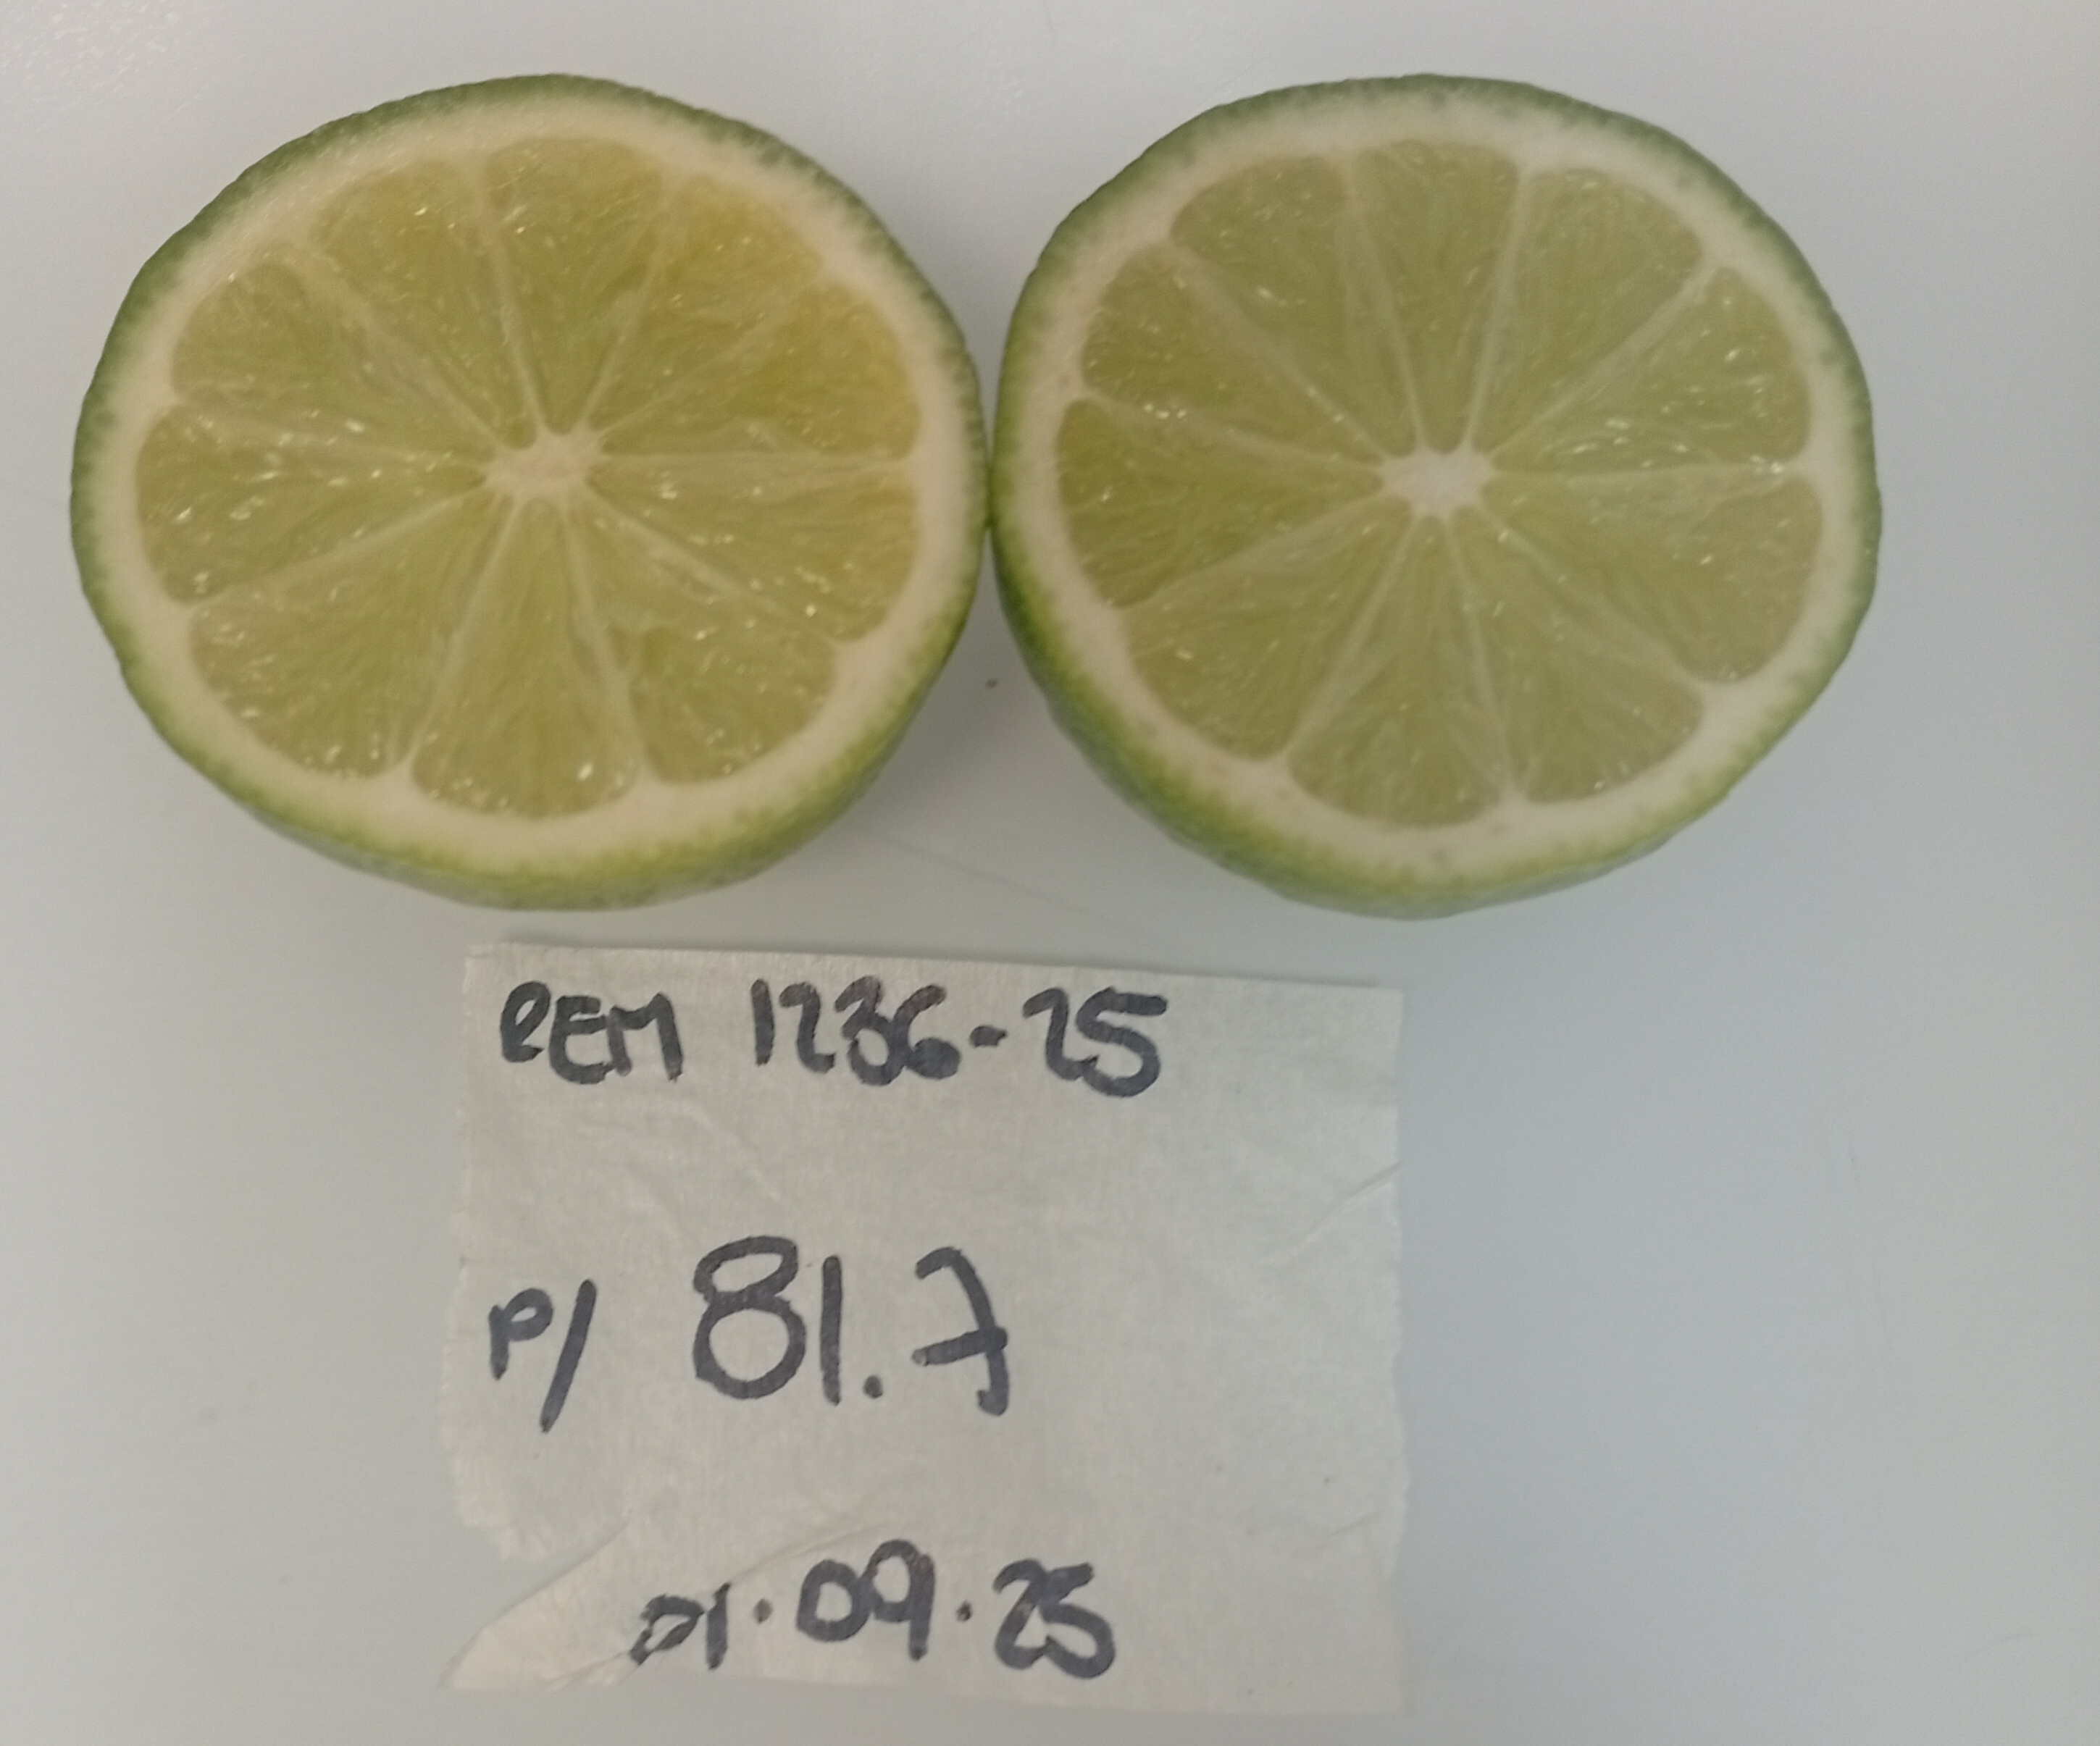 REM 1236-25
P/ 81.7
01.09.25